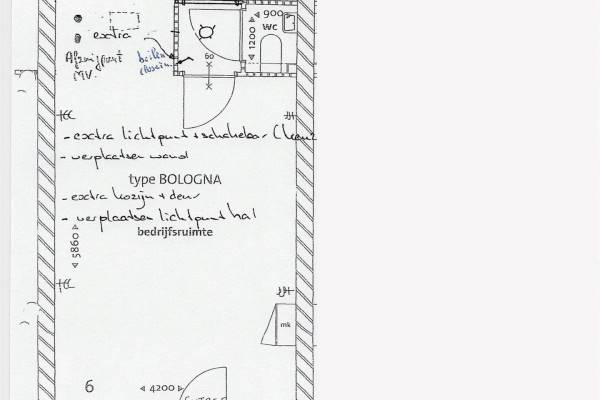 900
WC
1200
extra
60
Afzuigpunt
MV.
- extra lichtpunt + schakelaar
- verplaatsen wand
type BOLOGNA
- extra kozijn + deur
- verplaatsen lichtpunt hal
bedrijfsruimte
5860
mk
6
4200